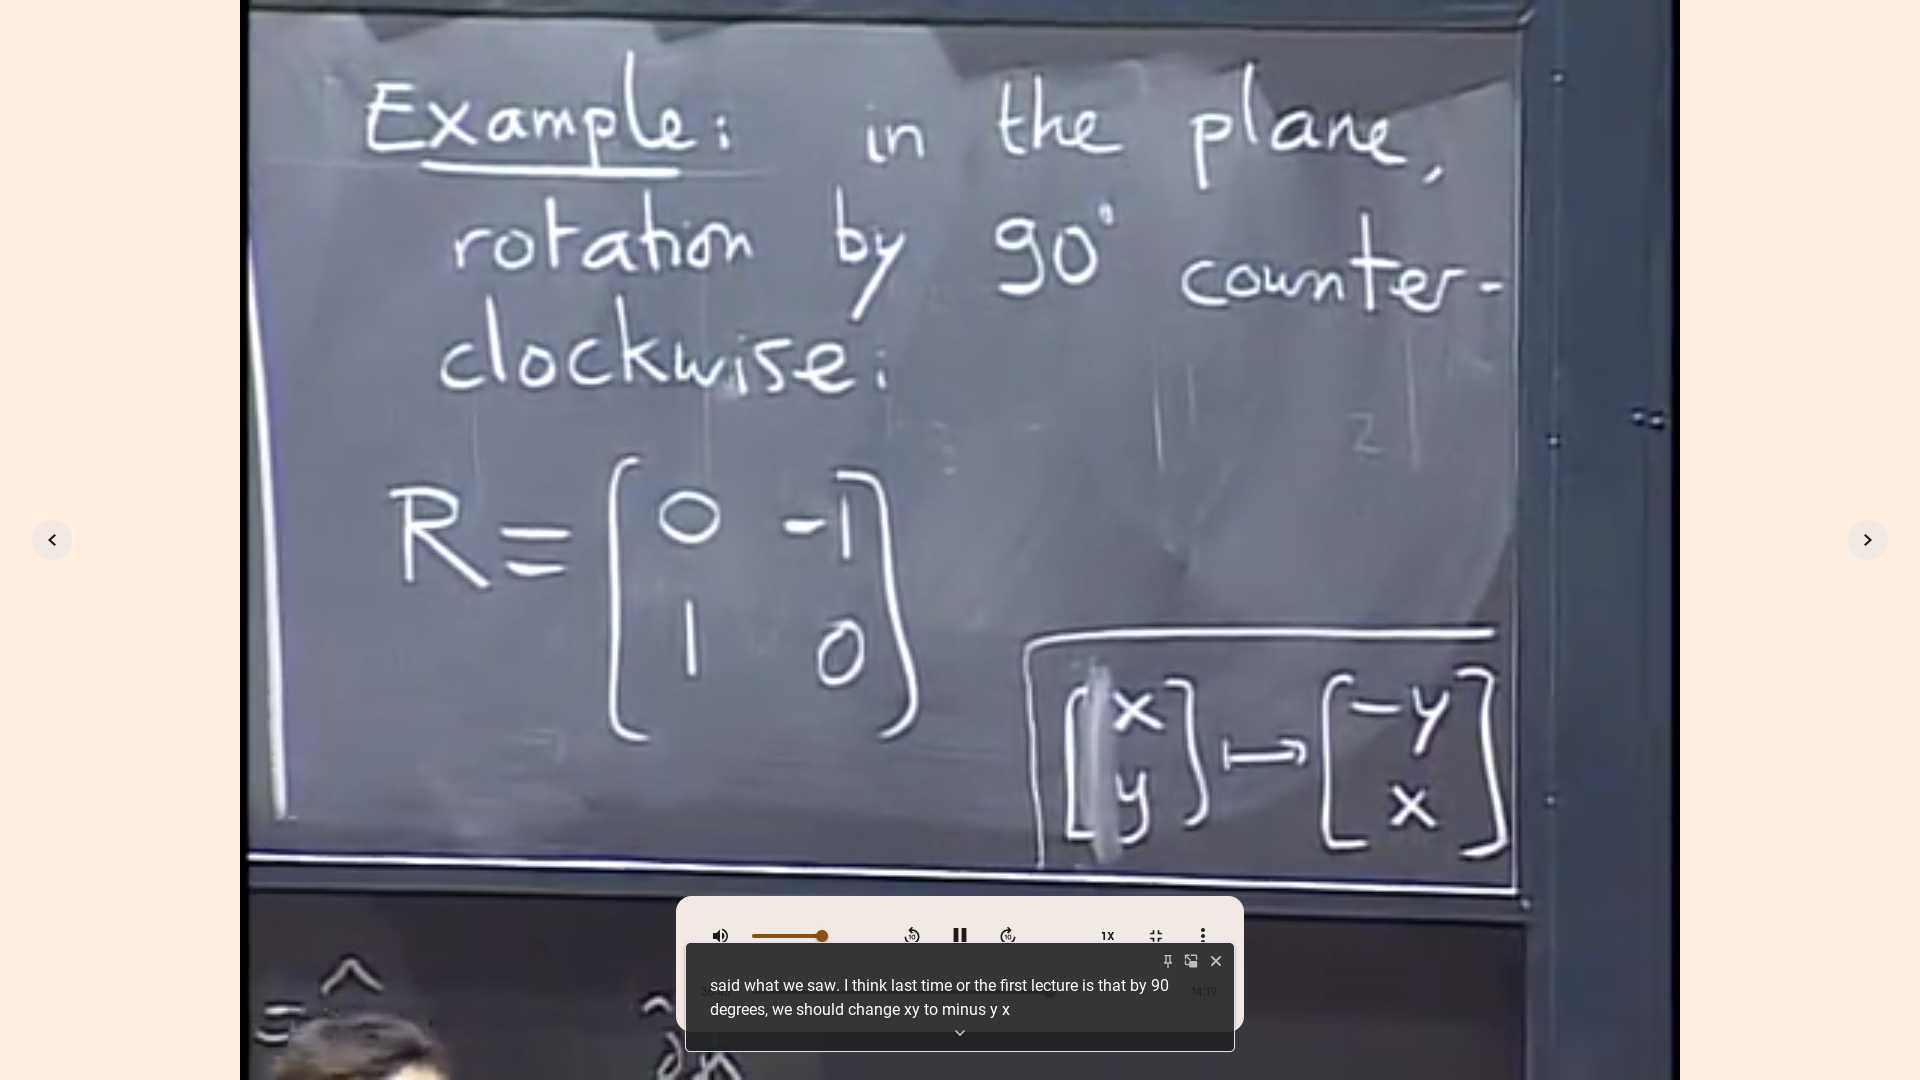 Example: in the plane,
rotation by 90° counter-
clockwise:
R = [0 -1
1 0]
[x
y] ↦ [-y
x]
1X
said what we saw. I think last time or the first lecture is that by 90
degrees, we should change xy to minus y x
14:19